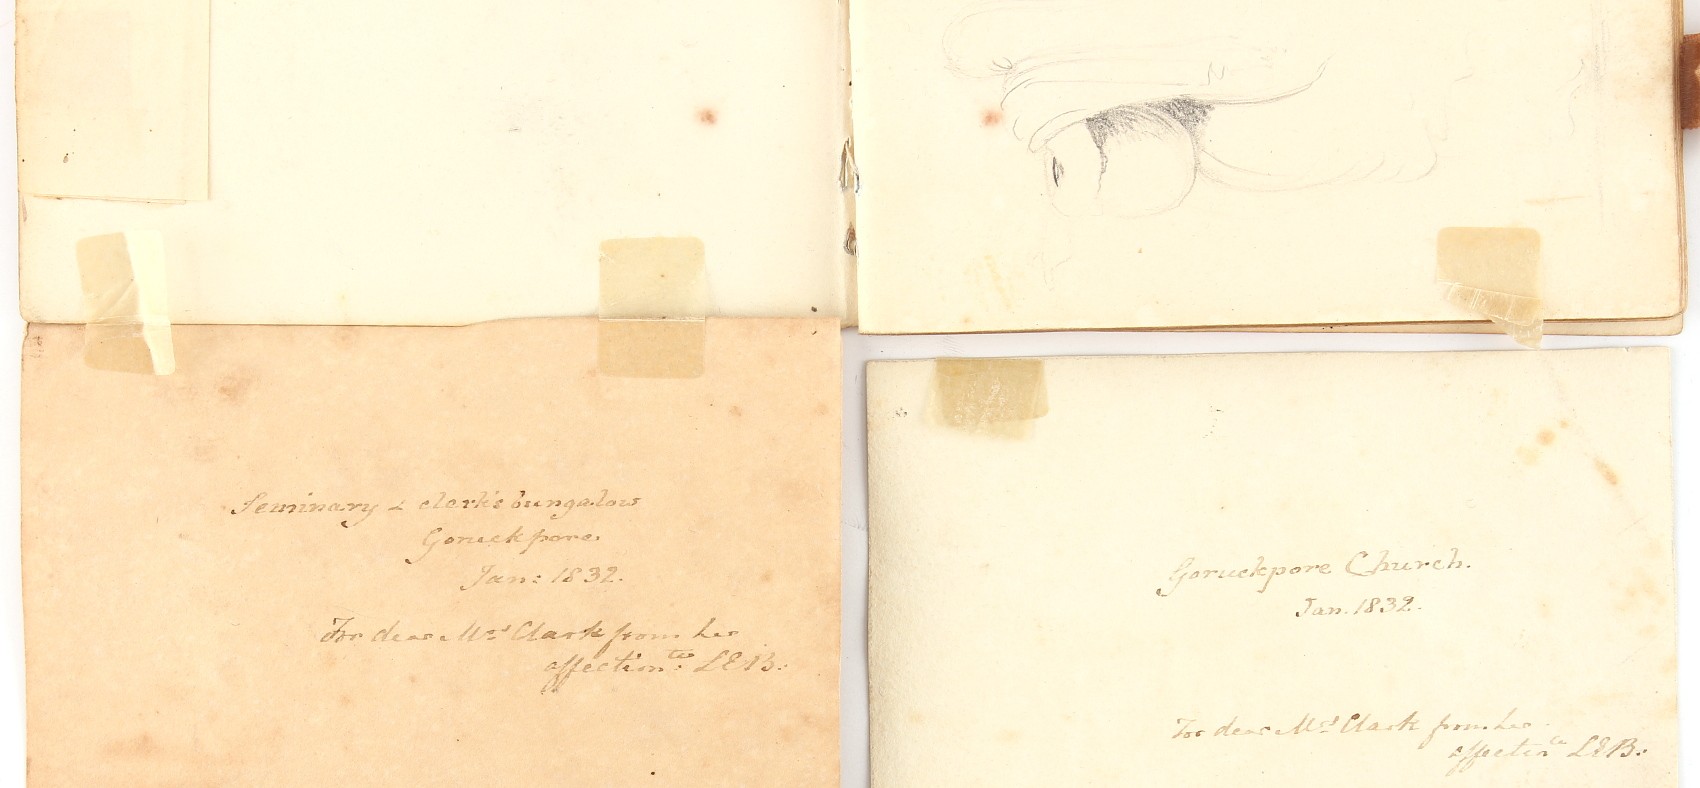 Seminary & clerk's bungalow
Goruckpore.
Jan: 1832.
For dear Mrs Clark from her
affectionte: LEB.
Goruckpore Church.
Jan. 1832.
For dear Mrs Clark from her
affectionte LEB.